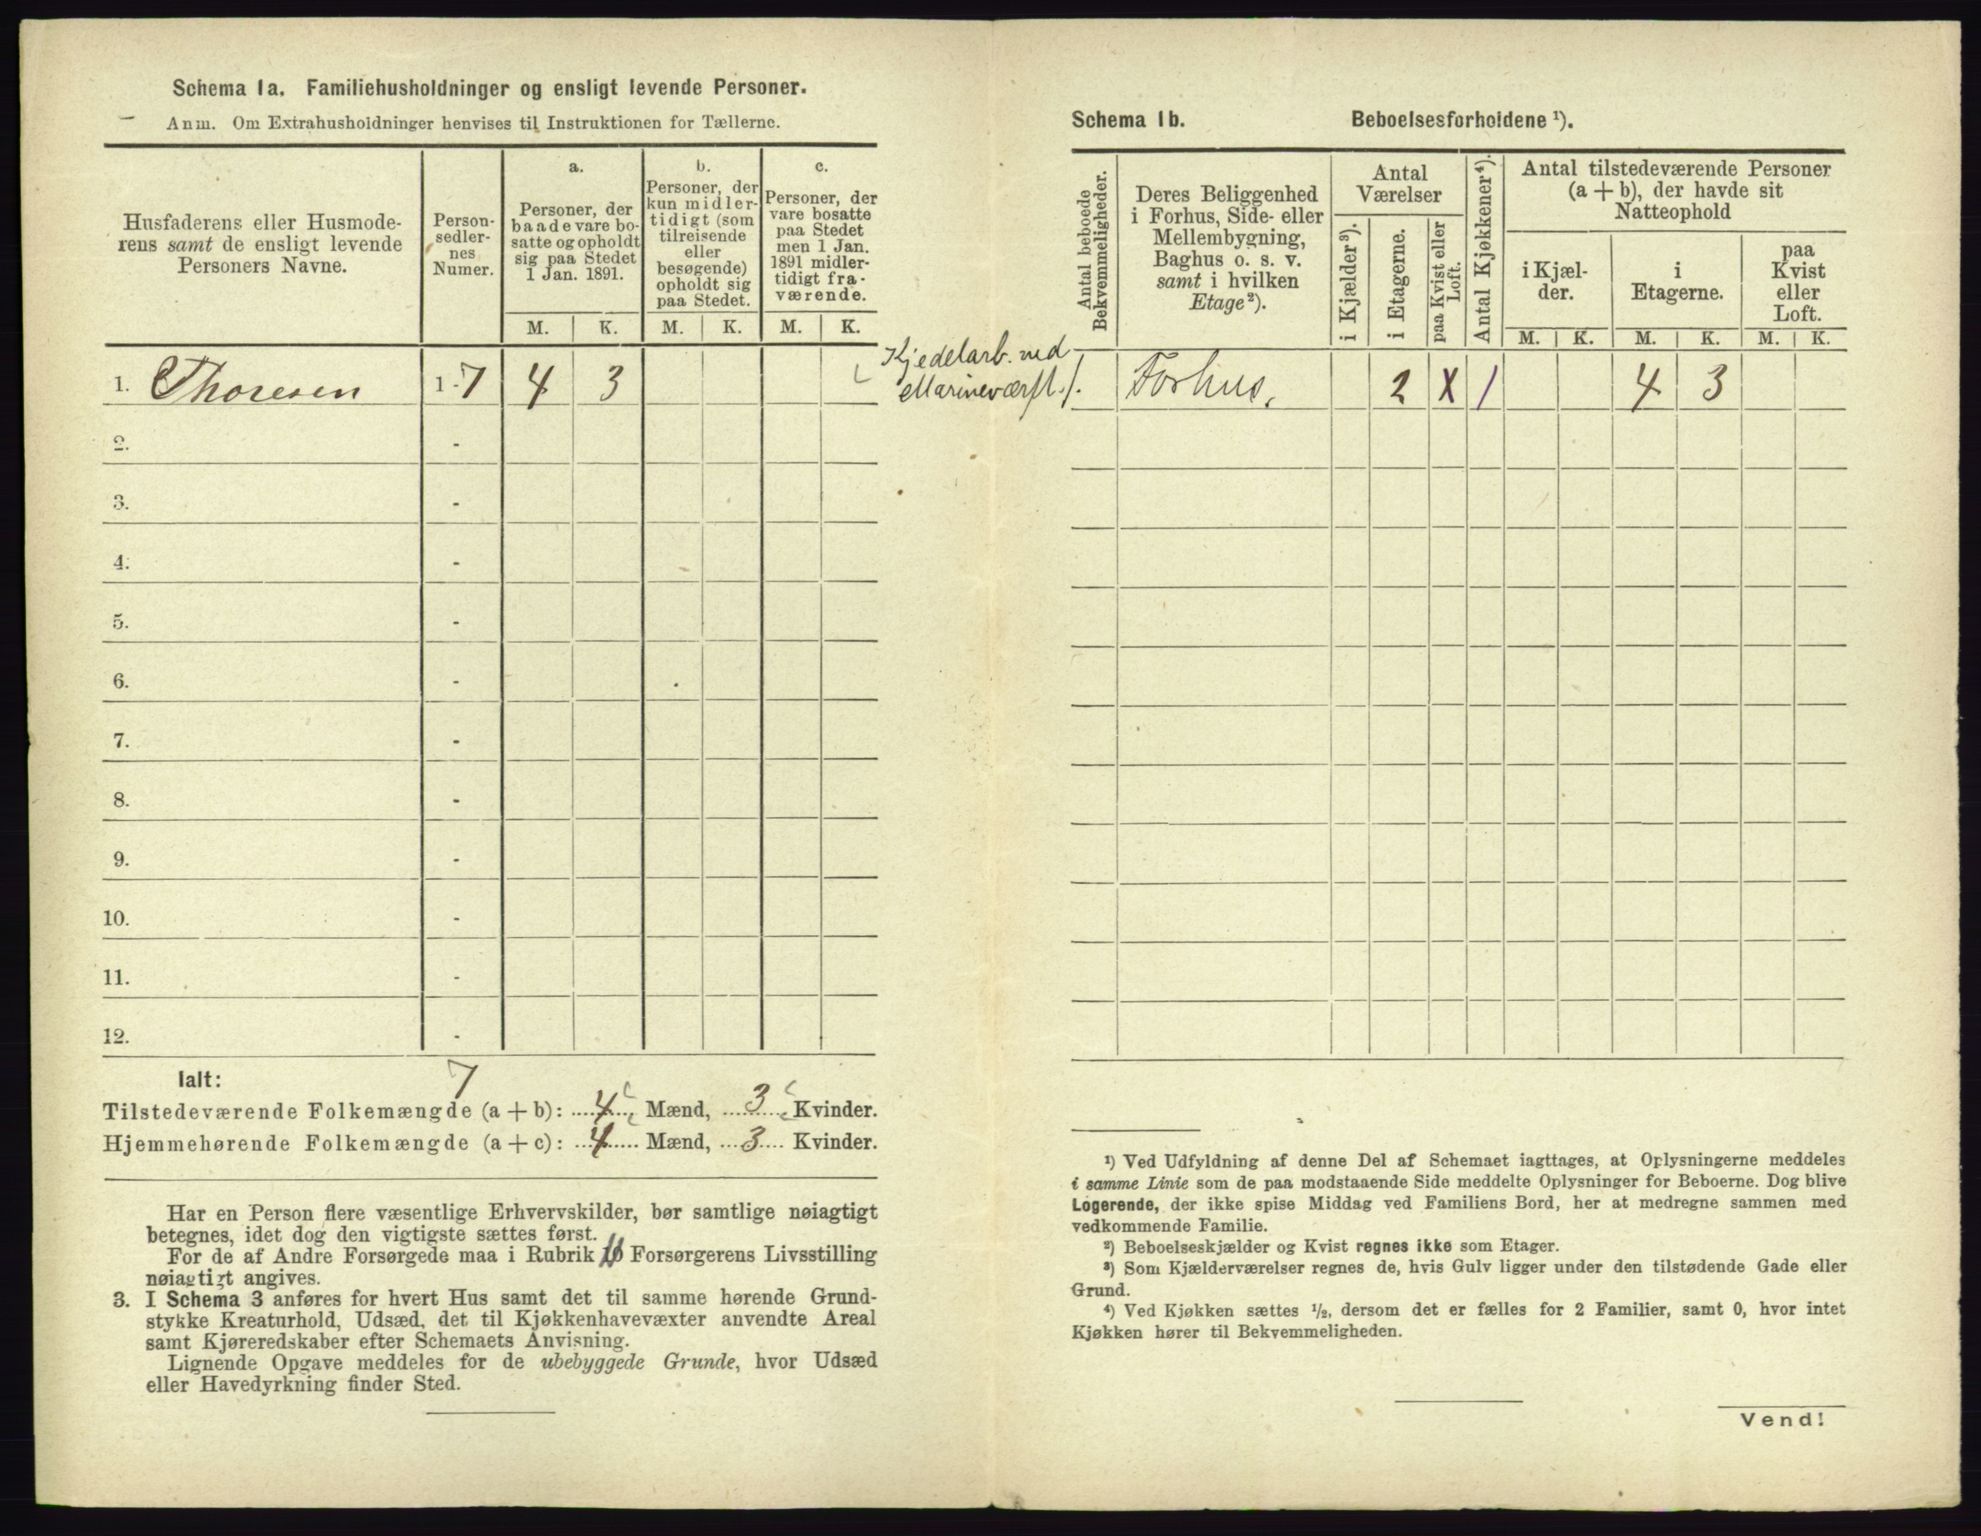 Schema 1a. Familiehusholdninger og ensligt levende Personer.
Anm. Om Extrahusholdninger henvises til Instruktionen for Tællerne.
Husfaderens eller Husmode-
rens samt de ensligt levende
Personers Navne.
Person-
sedler-
nes
Numer.
a.
Personer, der
baade vare bo-
satte og opholdt
sig paa Stedet
1 Jan. 1891.
b.
Personer, der
kun midler-
tidigt (som
tilreisende
eller
besøgende)
opholdt sig
paa Stedet.
c.
Personer, der
vare bosatte
paa Stedet
men 1 Jan.
1891 midler-
tidigt fra-
værende.
M. K. M. K. M. K.
1. Thoresen 1-7 4 3
Kjedelarb. ved
Marineværft.
2. -
3. -
4. -
5. -
6. -
7. -
8. -
9. -
10. -
11. -
12. -
Ialt: 7
Tilstedeværende Folkemængde (a + b): 4 Mænd, 3 Kvinder.
Hjemmehørende Folkemængde (a + c): 4 Mænd, 3 Kvinder.
Har en Person flere væsentlige Erhvervskilder, bør samtlige nøiagtigt
betegnes, idet dog den vigtigste sættes først.
For de af Andre Forsørgede maa i Rubrik Forsørgerens Livsstilling
nøiagtigt angives.
3. I Schema 3 anføres for hvert Hus samt det til samme hørende Grund-
stykke Kreaturhold, Udsæd, det til Kjøkkenhavevæxter anvendte Areal
samt Kjøreredskaber efter Schemaets Anvisning.
Lignende Opgave meddeles for de ubebyggede Grunde, hvor Udsæd
eller Havedyrkning finder Sted.
Schema 1b. Beboelsesforholdene ¹).
Antal beboede
Bekvemmeligheder.
Deres Beliggenhed
i Forhus, Side- eller
Mellembygning,
Baghus o. s. v.
samt i hvilken
Etage²).
Antal
Værelser
i Kjælder³).
i Etagerne.
paa Kvist eller
Loft.
Antal Kjøkkener⁴).
Antal tilstedeværende Personer
(a + b), der havde sit
Natteophold
i Kjæl-
der.
i
Etagerne.
paa
Kvist
eller
Loft.
M. K. M. K. M. K.
1. Forhus. 2 X 1 4 3
¹) Ved Udfyldning af denne Del af Schemaet iagttages, at Oplysningerne meddeles
i samme Linie som de paa modstaaende Side meddelte Oplysninger for Beboerne. Dog blive
Logerende, der ikke spise Middag ved Familiens Bord, her at medregne sammen med
vedkommende Familie.
²) Beboelseskjælder og Kvist regnes ikke som Etager.
³) Som Kjælderværelser regnes de, hvis Gulv ligger under den tilstødende Gade eller
Grund.
⁴) Ved Kjøkken sættes ½, dersom det er fælles for 2 Familier, samt 0, hvor intet
Kjøkken hører til Bekvemmeligheden.
Vend!